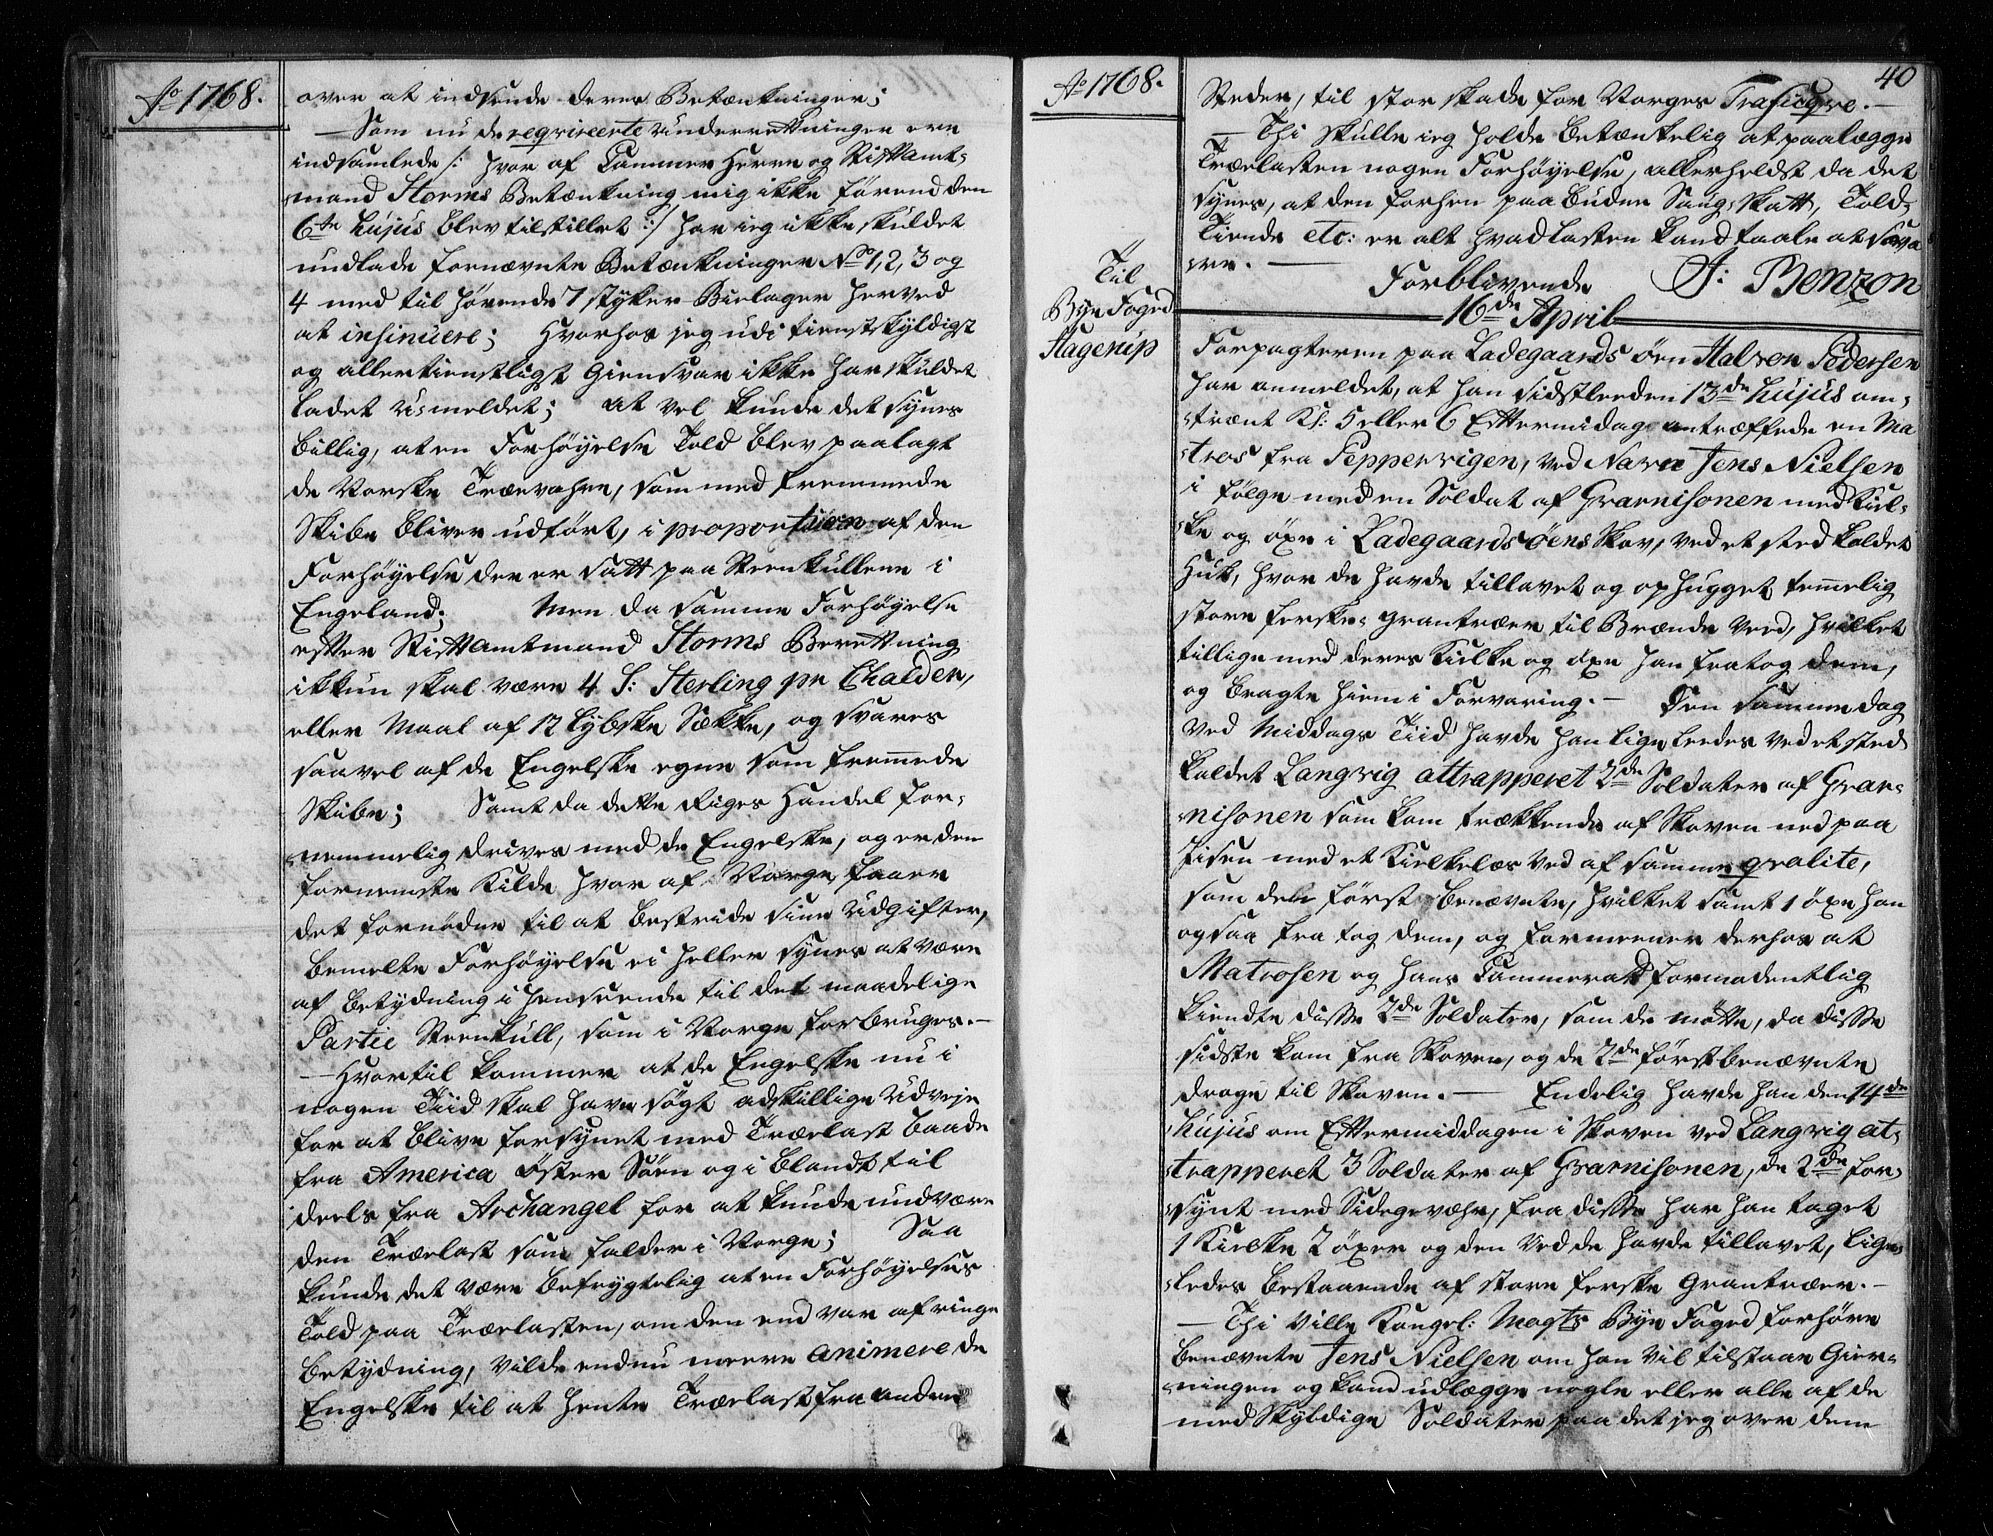 Ao 1768.
over at indsende deres Betænkninger;
— Som nu de reqvireerte Underrettninger ere
indsamlede /: hvor af Cammer Herre og Stiftamt-
mand Storms Betænkning mig ikke førend den
6te hujus blev tilstillet :/ har ieg ikke skuldet
undlade fornævnte Betænkninger No 1, 2, 3 og
4 med til hørende 7 styker Bielager herved
at insinuere; Hvorhos jeg udi tienstskyldigst
og allertienstligst Giensvar ikke har skuldet
ladet u-meldet; at vel kunde det synes
billig, at en Forhøyelse Told blev paalagt
de Norske Trævahre, som med fremmede
Skibe bliver udført, i proportion af den
Forhøyelse der er satt paa Steenkullene i
Engeland; Men da samme Forhøyelse
efter Stiftamtmand Storms Berettning
ikkun skal være 4 S: Sterling pr Chalden,
eller Maal af 12 Lybske Sække, og svares
saavel af de Engelske egne som fremmede
Skibe; Samt da dette Riges Handel for-
nemmelig drives med de Engelske, og er den
fornemste Kilde hvor af Norge faaer
det fornødne til at bestride sine Udgifter,
bemelte Forhøyelse ei heller synes at være
af betydning i henseende til det maadelige
Partie Steenkull, som i Norge forbruges.—
— Hvortil kommer at de Engelske nu i
nogen Tiid skal have søgt adskillige Udveje
for at blive forsynet med Trælast baade
fra America Øster Søen og i blandt til
deels fra Archangel for at kunde undvære
den Trælast som falder i Norge; Saa
kunde det være befrygtelig at en Forhøyelses
Told paa Trælasten, om den end var af ringe
betydning, vilde endnu meere animere de
Engelske til at hente Trælast fra andre
Ao 1768.
40
Steder, til stor skade for Norges Trafiqve.—
— Thi skulle ieg holde betænkelig at paalægge
Trælasten nogen Forhøyelse, allerhelst da det
synes, at den forhen paa budne Saug-skatt, Told,
Tiende etc: er alt hvad lasten kand taale at sva-
re. —
Forblivende J: Benzon
16de April
Til
Bye Foged
Hagerup
Forpagteren paa Ladegaards øen Halvor Pedersen
har anmeldet, at han sidstleeden 13de hujus om-
trent Kl: 5 eller 6 Eftermidag antræffede en Ma-
tros fra Pepperviigen, ved Navn Jens Nielsen
i følge med en Soldat af Guarnisonen med Kiel-
ke og øxe i Ladegaards øens Skov, ved et sted kaldet
Huk, hvor de havde tillavet og ophugget temmelig
store ferske Grantræer til Brænde Veed, hvilket
tillige med deres Kielke og øxe han fratog dem,
og bragte hiem i Forvaring.— Den samme dag
ved Middags Tiid havde han ligeleedes ved et sted
kaldet Langviig attrapperet 2de Soldater af Guar-
nisonen som kom trækkende af Skoven ned paa
Jisen med et Kielkelæs Ved af samme qvalite,
som de først benævnte, hvilket samt 1 øxe han
ogsaa fra tog dem, og formeener derhos at
Matrosen og hans Cammerat formodentlig
kiendte disse 2de Soldater, som de mötte, da disse
sidste kom fra Skoven, og de 2de først benævnte
droge til Skoven.— Endelig havde han den 14de
hujus om Eftermiddagen i Skoven ved Langviig at-
trapperet 3 Soldater af Guarnisonen, de 2de for-
synt med Sidegevæhr, fra disse har han taget
1 Kielke 2 øxer og den Ved de havde tillavet, lige-
ledes bestaaende af store ferske Grantræer.—
— Thi ville Kongel: Maysts Bye Foged forhøre
benævnte Jens Nielsen om han vil tilstaae Gier-
ningen og kand udlægge nogle eller alle af de
med Skyldige Soldater paa det jeg over dem